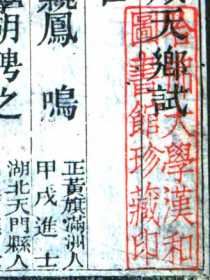 天鄉試
鳳鳴
正黃旗滿洲人
甲戌進士
朝聘之
湖北天門縣人
大學漢和
圖書館珍藏印